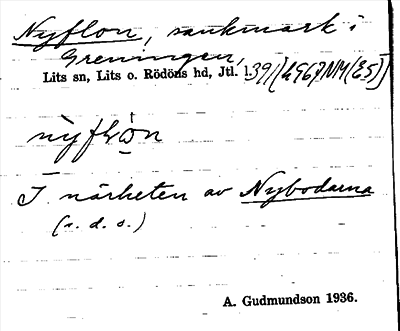 Nyflon, sankmark i
Greningen,
Lits sn, Lits o. Rödöns hd, Jtl. l.
I närheten av Nybodarna
(s. d. s.)
A. Gudmundson 1936.